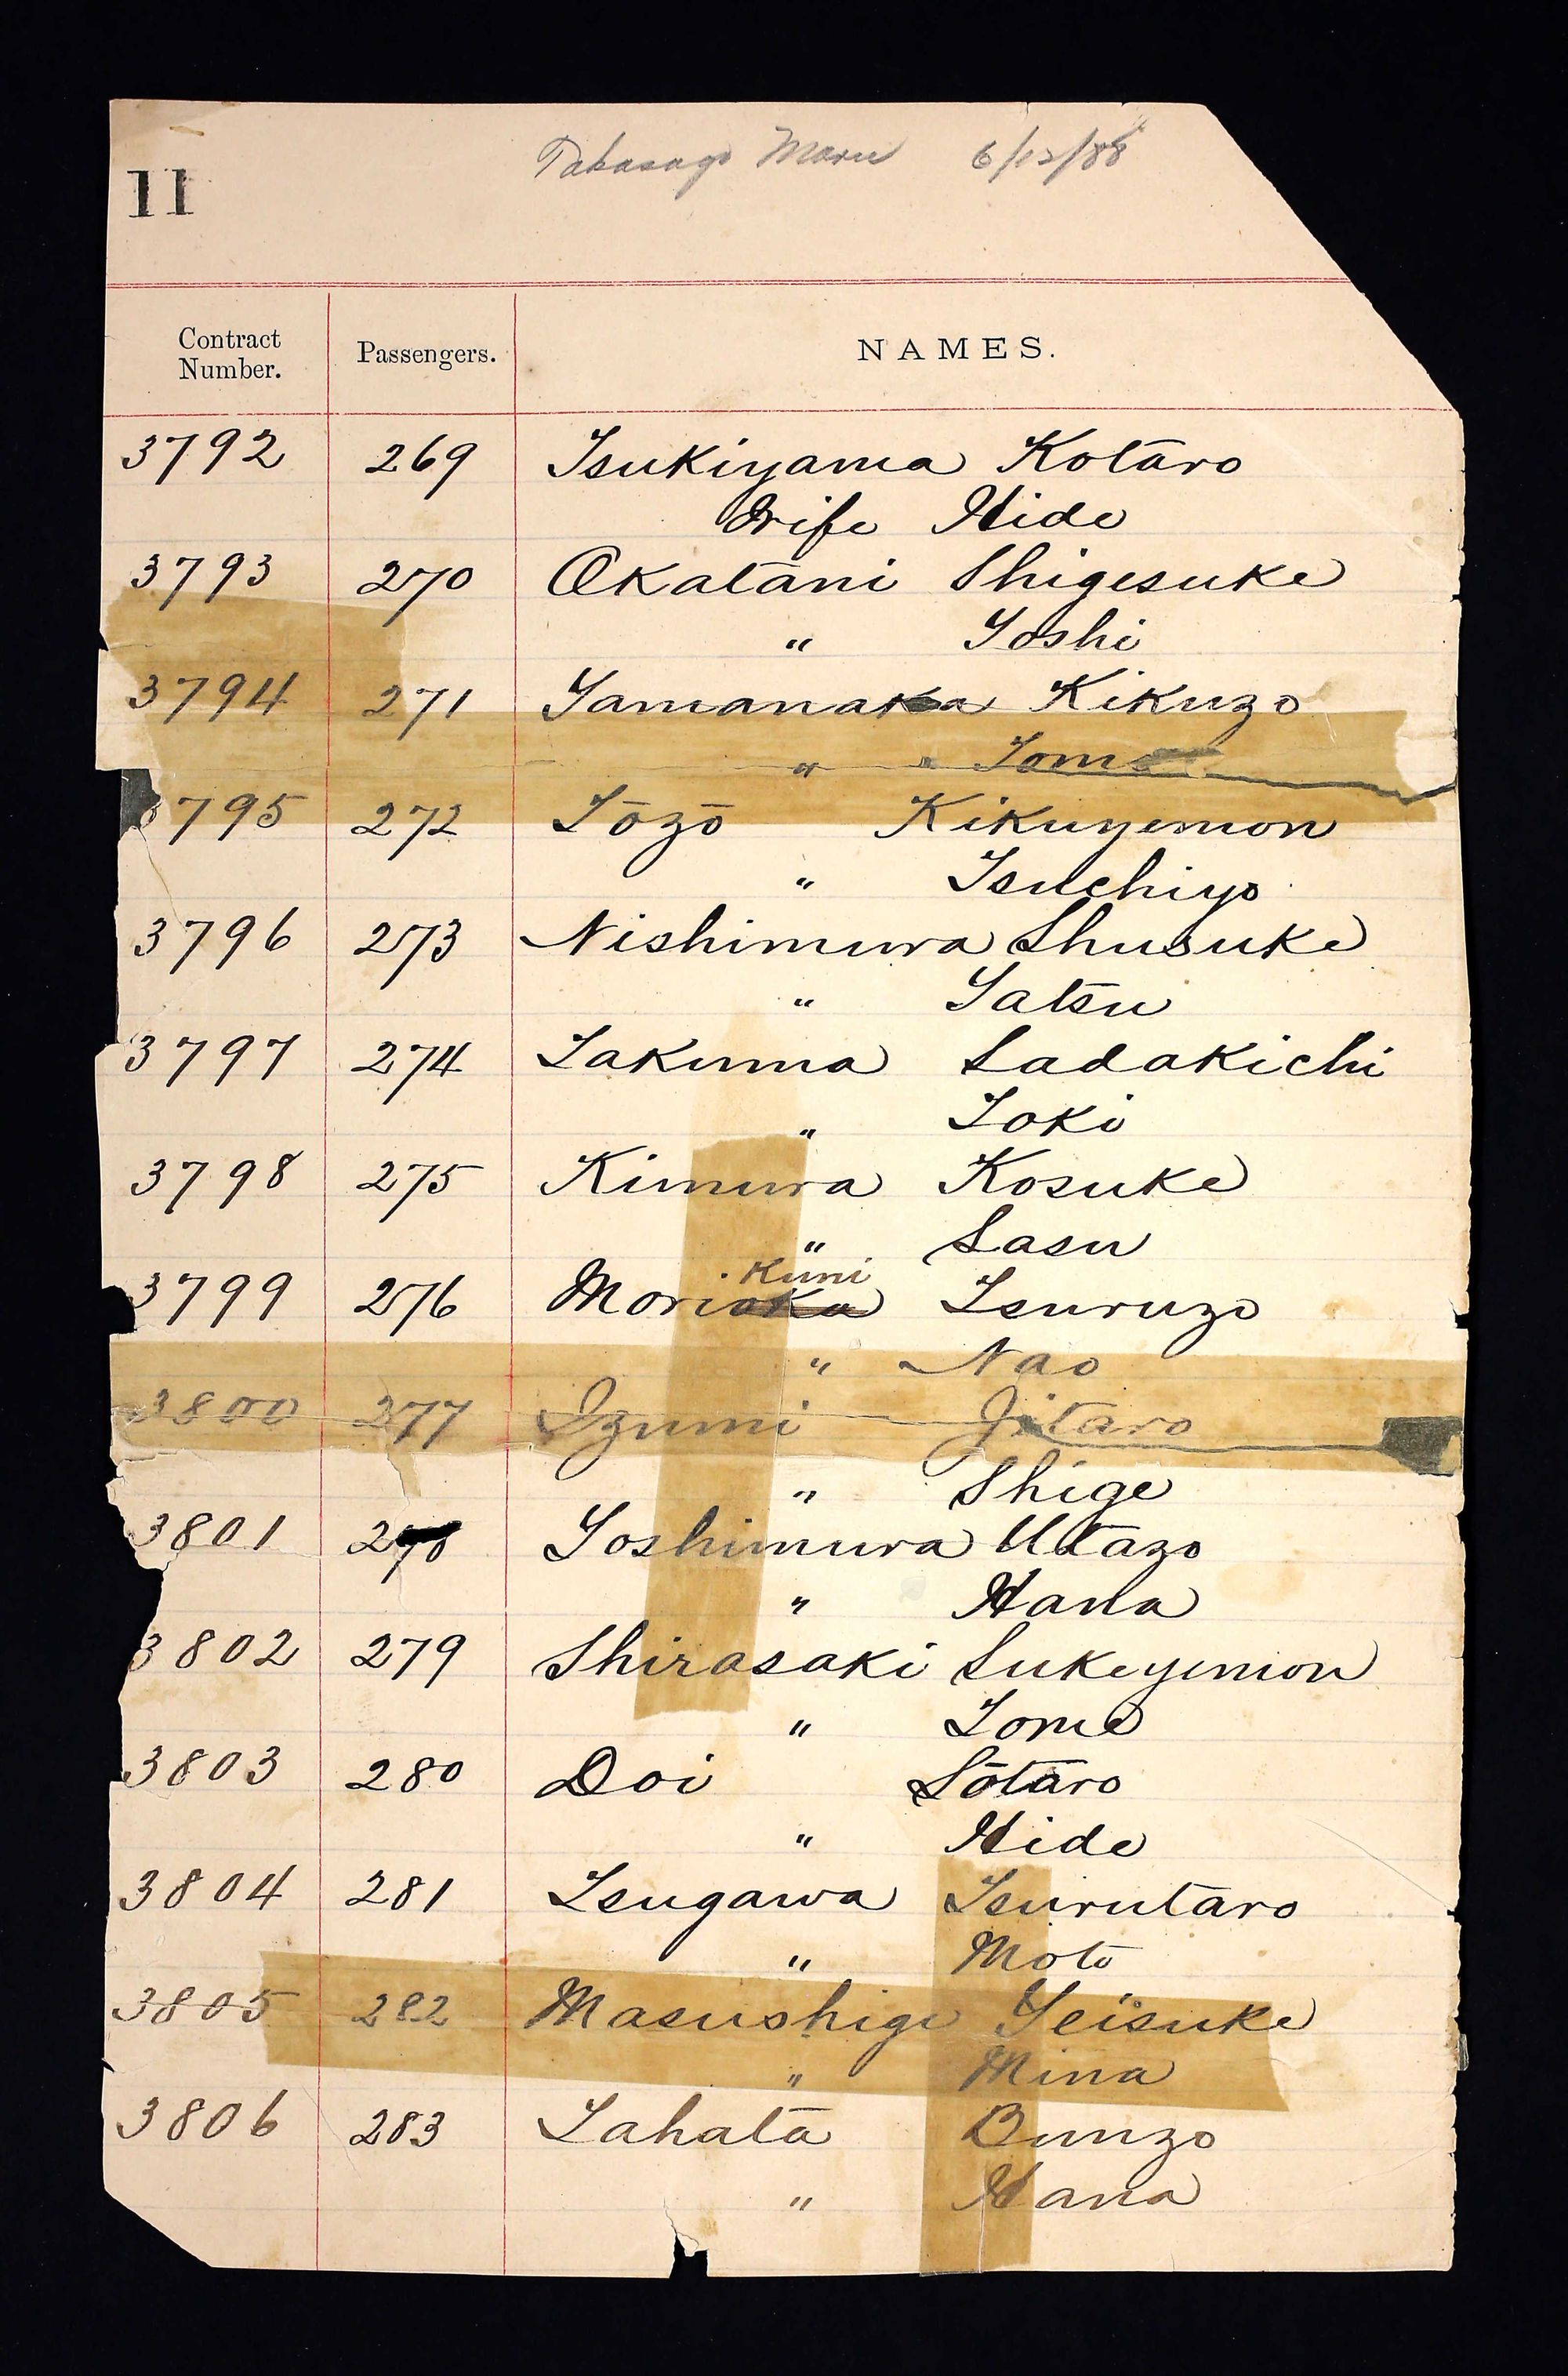 11
Takasago Maru 6/12/88
Contract Number.
Passengers.
NAMES.
3792 269 Tsukiyama Kotaro
Wife Hide
3793 270 Okatani Shigesuke
" Yoshi
3794 271 Yamanaka Kikuzo
" Tome
3795 272 Tōzō Kikuyemon
" Tsuchiyo
3796 273 Nishimura Shusuke
" Yatsu
3797 274 Sakuma Sadakichi
" Toki
3798 275 Kimura Kosuke
" Sasu
Kuni
3799 276 Morioka Tsuruzo
" Nao
3800 277 Izumi Jitaro
" Shige
3801 278 Yoshimura Utazo
" Hana
3802 279 Shirasaki Sukeyemon
" Tome
3803 280 Doi Sōtaro
" Hide
3804 281 Tsugawa Tsurutaro
" Moto
3805 282 Masushige Yeisuke
" Mina
3806 283 Tahata Bunzo
" Hana